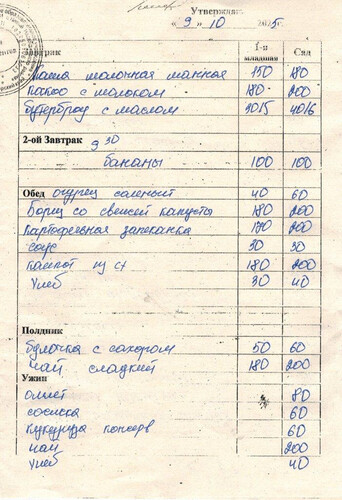 Утверждаю
« 9 » 10 2015г.
Завтрак 1-я младшая Сад
Каша молочная манная 150 180
Какао с молоком 180 200
Бутерброд с маслом 3015 4016
2-ой Завтрак 9 30
бананы 100 100
Обед огурец соленый 40 60
Борщ со свежей капусты 180 200
Картофельная запеканка 170 200
соус 30 30
компот из с/ф 180 200
хлеб 30 40
Полдник
булочка с сахаром 50 60
чай сладкий 180 200
Ужин
омлет 80
сосиска 60
кукуруза консерв 60
чай 200
хлеб 40